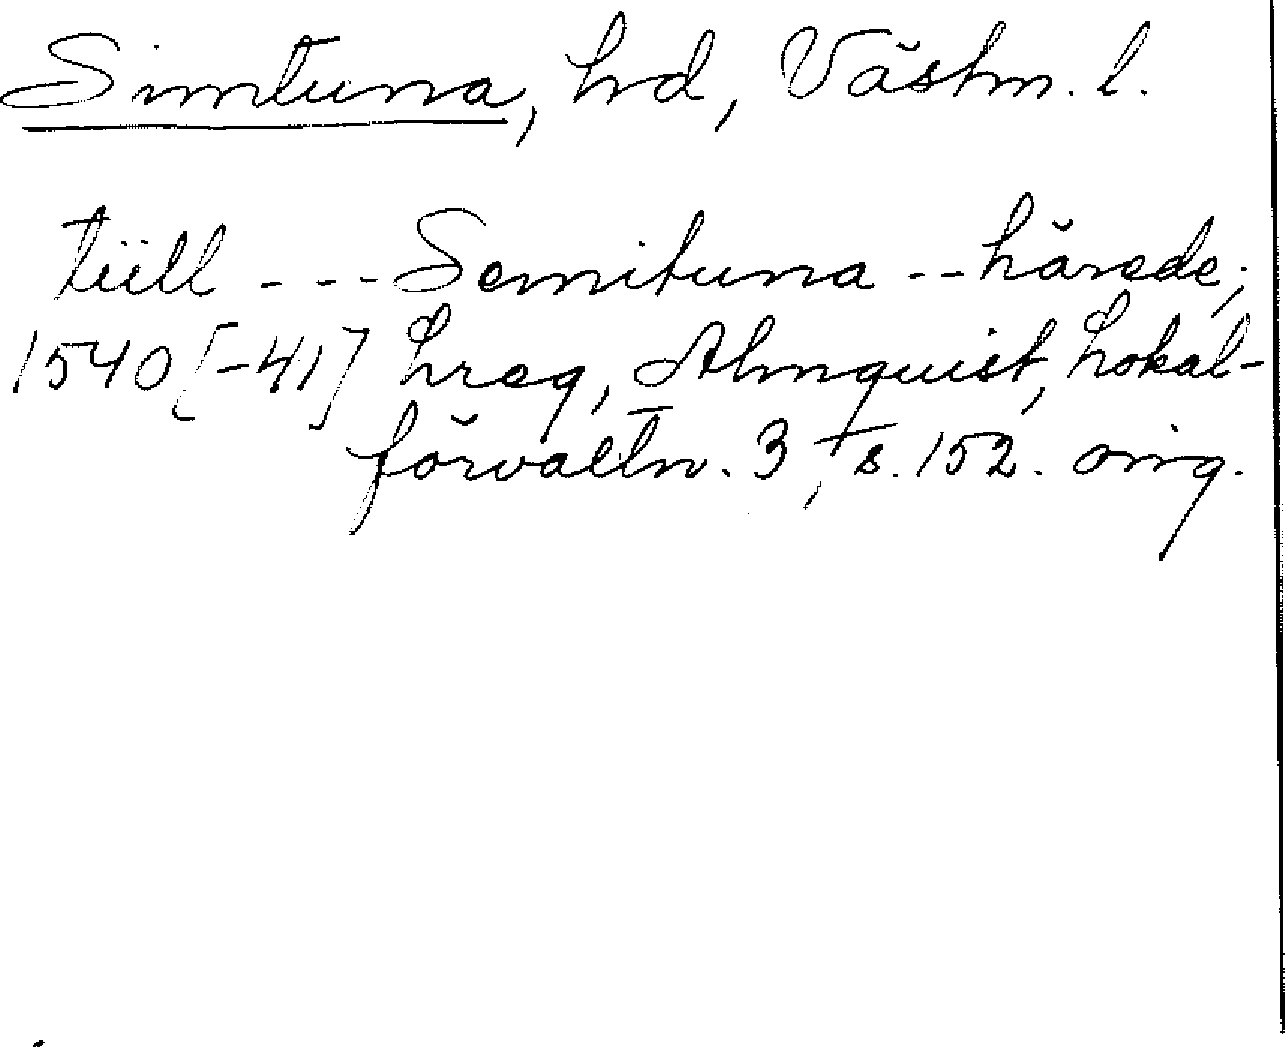 Simtuna, hd, Västm. l.
tiill --- Semituna -- härede;
1540[-41] hreg, Almquist, Lokal-
förvaltn. 3, s. 152. orig.